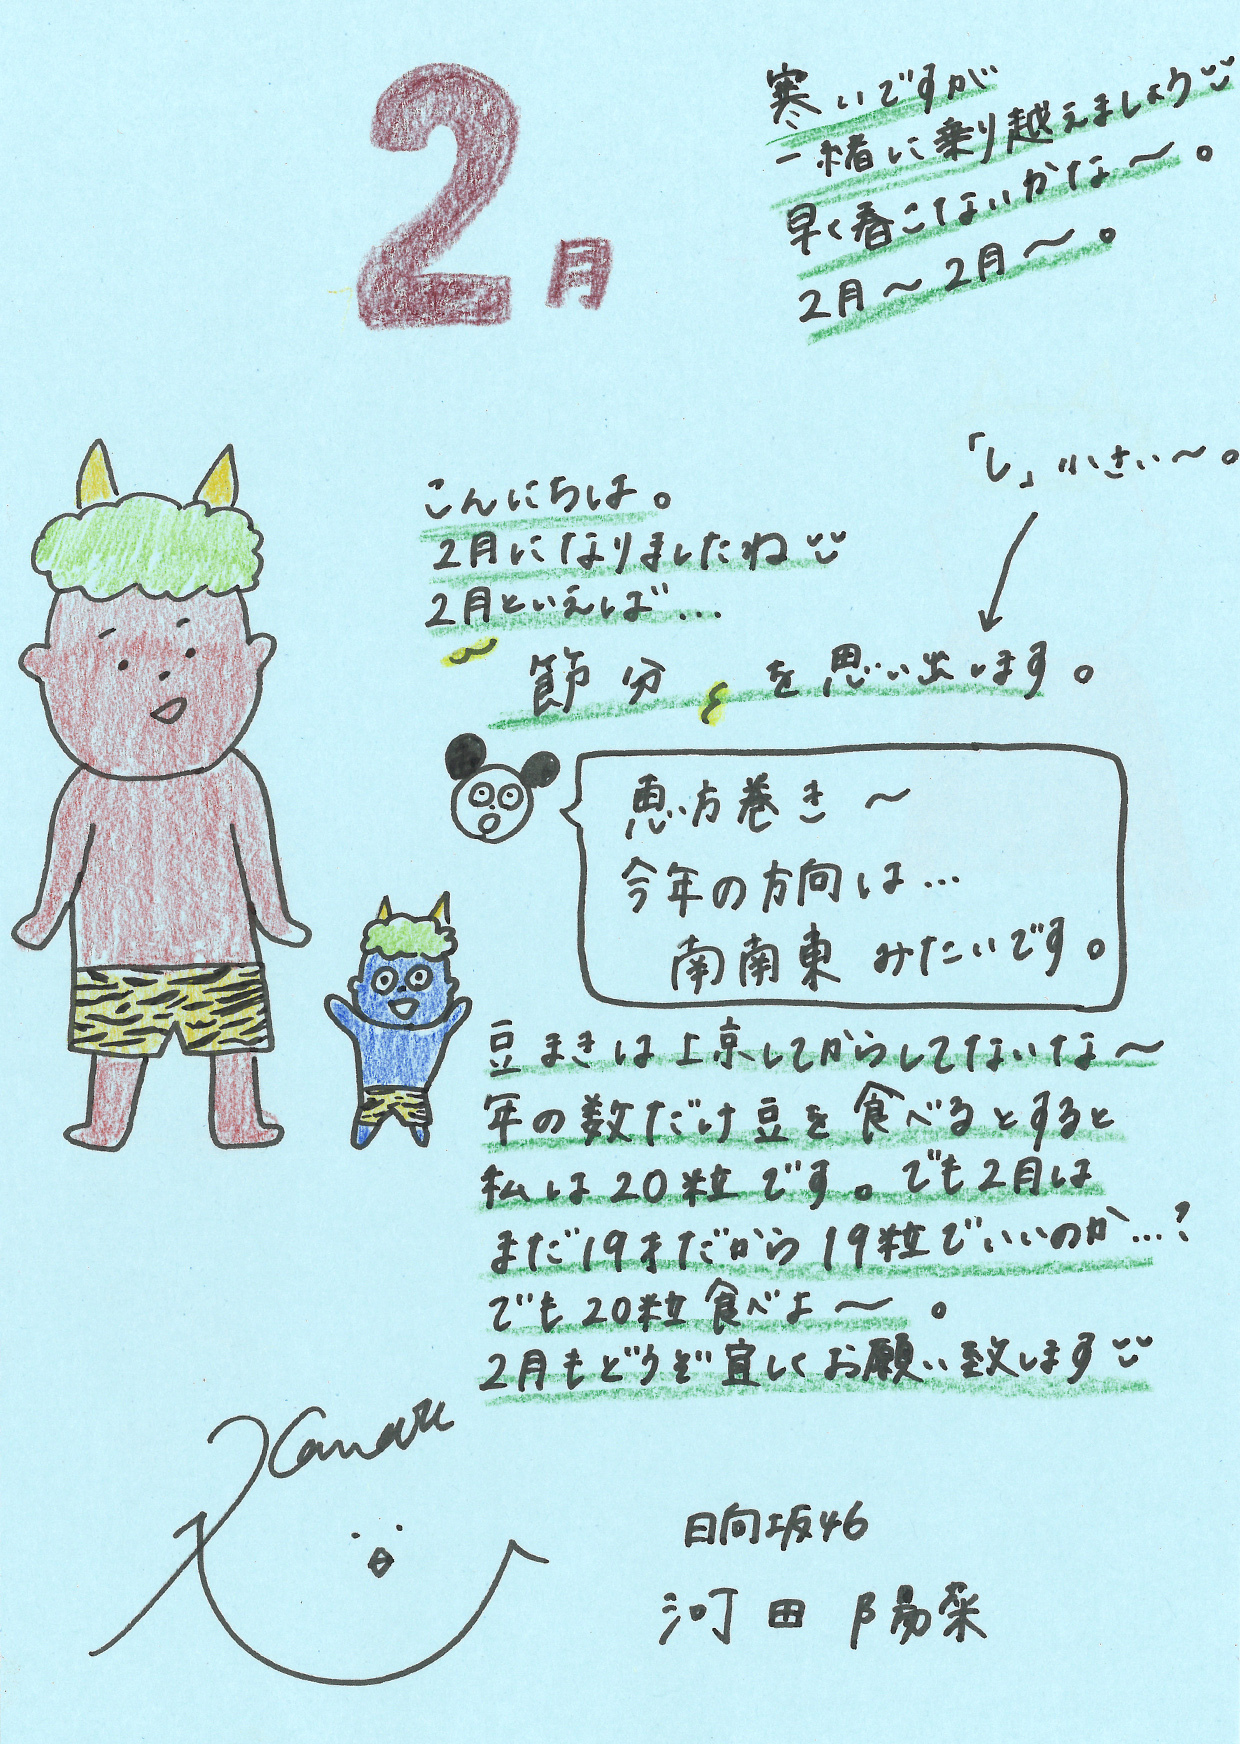 2月
寒いですが
一緒に乗り越えましょう
早く春こないかな〜。
2月〜2月〜。
「し」小さい〜。
こんにちは。
2月になりましたね
2月といえば...
節分 を思い出します。
恵方巻き〜
今年の方向は...
南南東みたいです。
豆まきは上京してからしてないな〜
年の数だけ豆を食べるとすると
私は20粒です。でも2月は
まだ19才だから19粒でいいのか...?
でも20粒食べよ〜。
2月もどうぞ宜しくお願い致します
日向坂46
河田陽菜